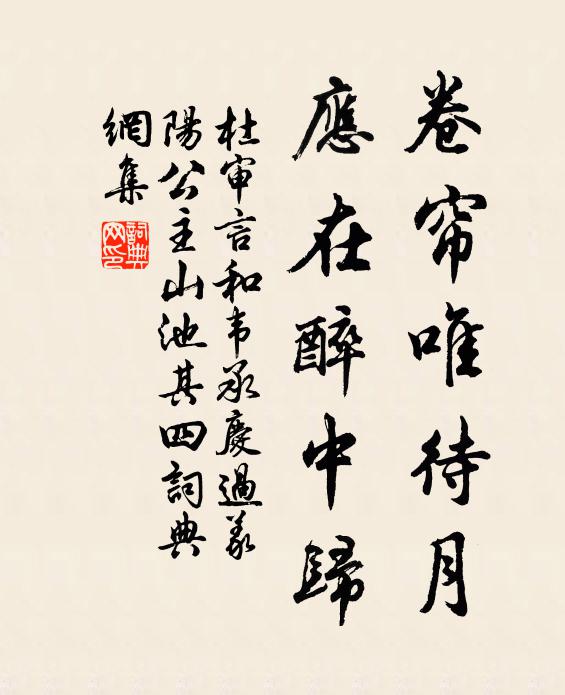 卷帘唯待月
應在醉中歸
杜审言和韦承慶過義
陽公主山池其四詞典
網集
詞典
网印